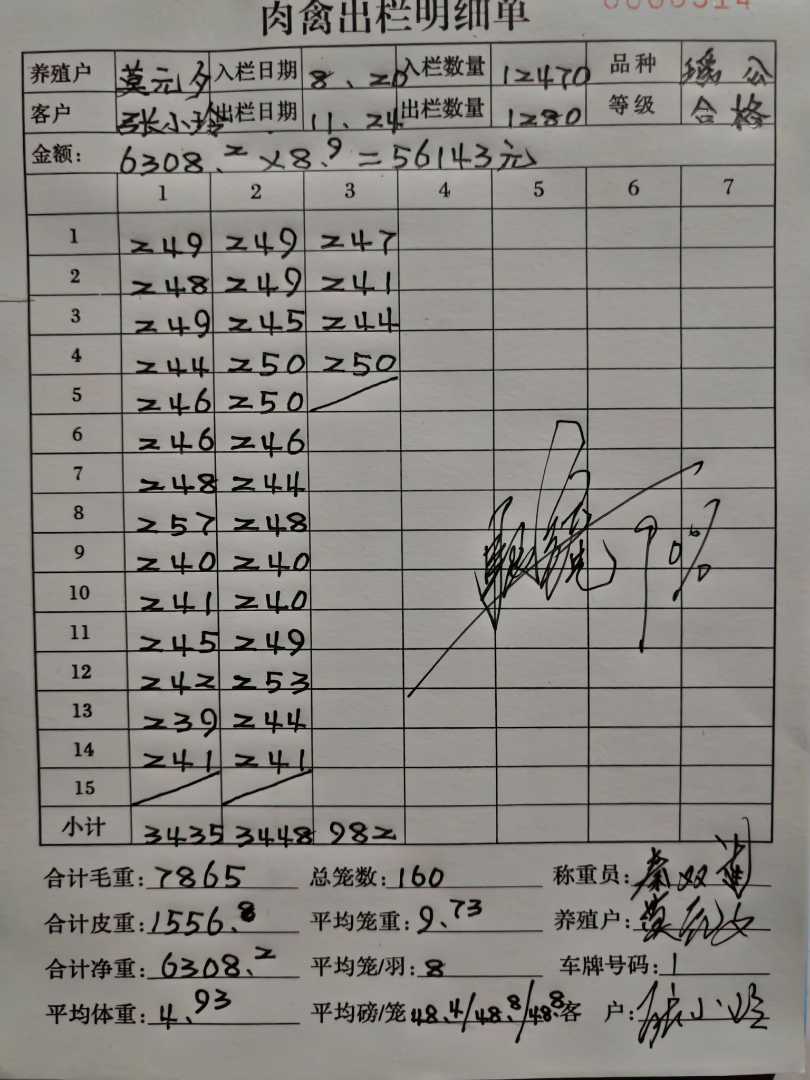 肉禽出栏明细单
养殖户 莫元夕 入栏日期 8、20 入栏数量 12470 品种 瑶公
客户 张小玲 出栏日期 11、24 出栏数量 1280 等级 合格
金额: 6308.2×8.9=56143元
1 2 3 4 5 6 7
1 249 249 247
2 248 249 241
3 249 245 244
4 244 250 250
5 246 250
6 246 246
7 248 244
8 257 248
9 240 240
10 241 240
11 245 249
12 242 253
13 239 244
14 241 241
15
90%
小计 3435 3448 982
合计毛重: 7865 总笼数: 160 称重员: 秦双
合计皮重: 1556.8 平均笼重: 9.73 养殖户:
合计净重: 6308.2 平均笼/羽: 8 车牌号码: 1
平均体重: 4.93 平均磅/笼 48.4/48.8/48.8 客 户: 张小玲